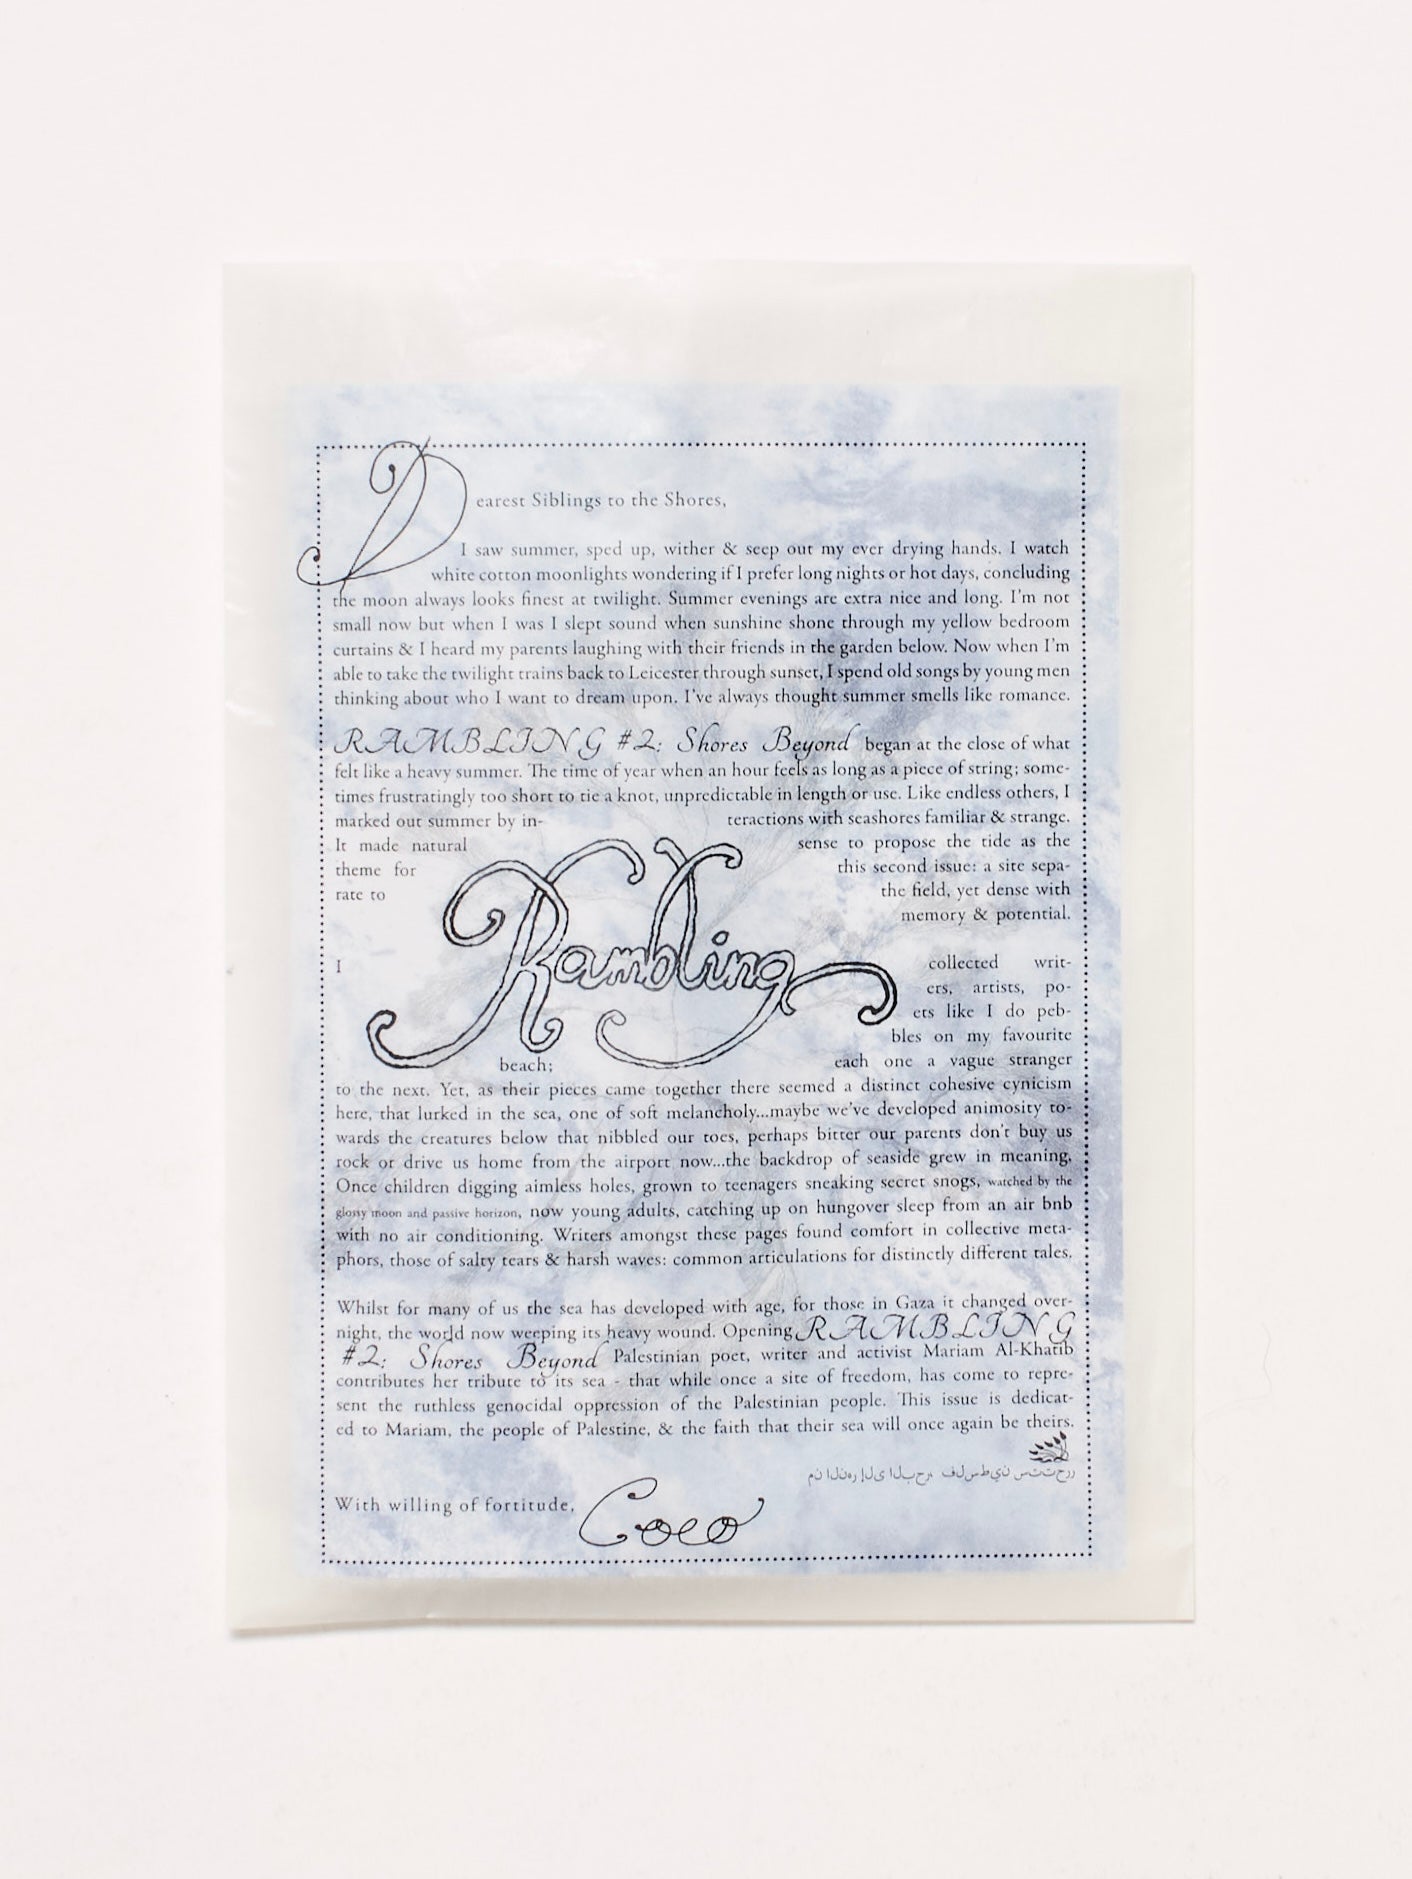 Dearest Siblings to the Shores,
I saw summer, sped up, wither & seep out my ever drying hands. I watch
white cotton moonlights wondering if I prefer long nights or hot days, concluding
the moon always looks finest at twilight. Summer evenings are extra nice and long. I'm not
small now but when I was I slept sound when sunshine shone through my yellow bedroom
curtains & I heard my parents laughing with their friends in the garden below. Now when I'm
able to take the twilight trains back to Leicester through sunset, I spend old songs by young men
thinking about who I want to dream upon. I've always thought summer smells like romance.
RAMBLING #2: Shores Beyond began at the close of what
felt like a heavy summer. The time of year when an hour feels as long as a piece of string; some-
times frustratingly too short to tie a knot, unpredictable in length or use. Like endless others, I
marked out summer by in- teractions with seashores familiar & strange.
It made natural sense to propose the tide as the
theme for this second issue: a site sepa-
rate to the field, yet dense with
memory & potential.
Rambling
I collected writ-
ers, artists, po-
ets like I do peb-
bles on my favourite
beach; each one a vague stranger
to the next. Yet, as their pieces came together there seemed a distinct cohesive cynicism
here, that lurked in the sea, one of soft melancholy...maybe we've developed animosity to-
wards the creatures below that nibbled our toes, perhaps bitter our parents don't buy us
rock or drive us home from the airport now...the backdrop of seaside grew in meaning.
Once children digging aimless holes, grown to teenagers sneaking secret snogs, watched by the
glossy moon and passive horizon, now young adults, catching up on hungover sleep from an air bnb
with no air conditioning. Writers amongst these pages found comfort in collective meta-
phors, those of salty tears & harsh waves: common articulations for distinctly different tales.
Whilst for many of us the sea has developed with age, for those in Gaza it changed over-
night, the world now weeping its heavy wound. Opening RAMBLING
#2: Shores Beyond Palestinian poet, writer and activist Mariam Al-Khatib
contributes her tribute to its sea - that while once a site of freedom, has come to repre-
sent the ruthless genocidal oppression of the Palestinian people. This issue is dedicat-
ed to Mariam, the people of Palestine, & the faith that their sea will once again be theirs.
من النهر إلى البحر فلسطين ستتحرر
With willing of fortitude, Coco